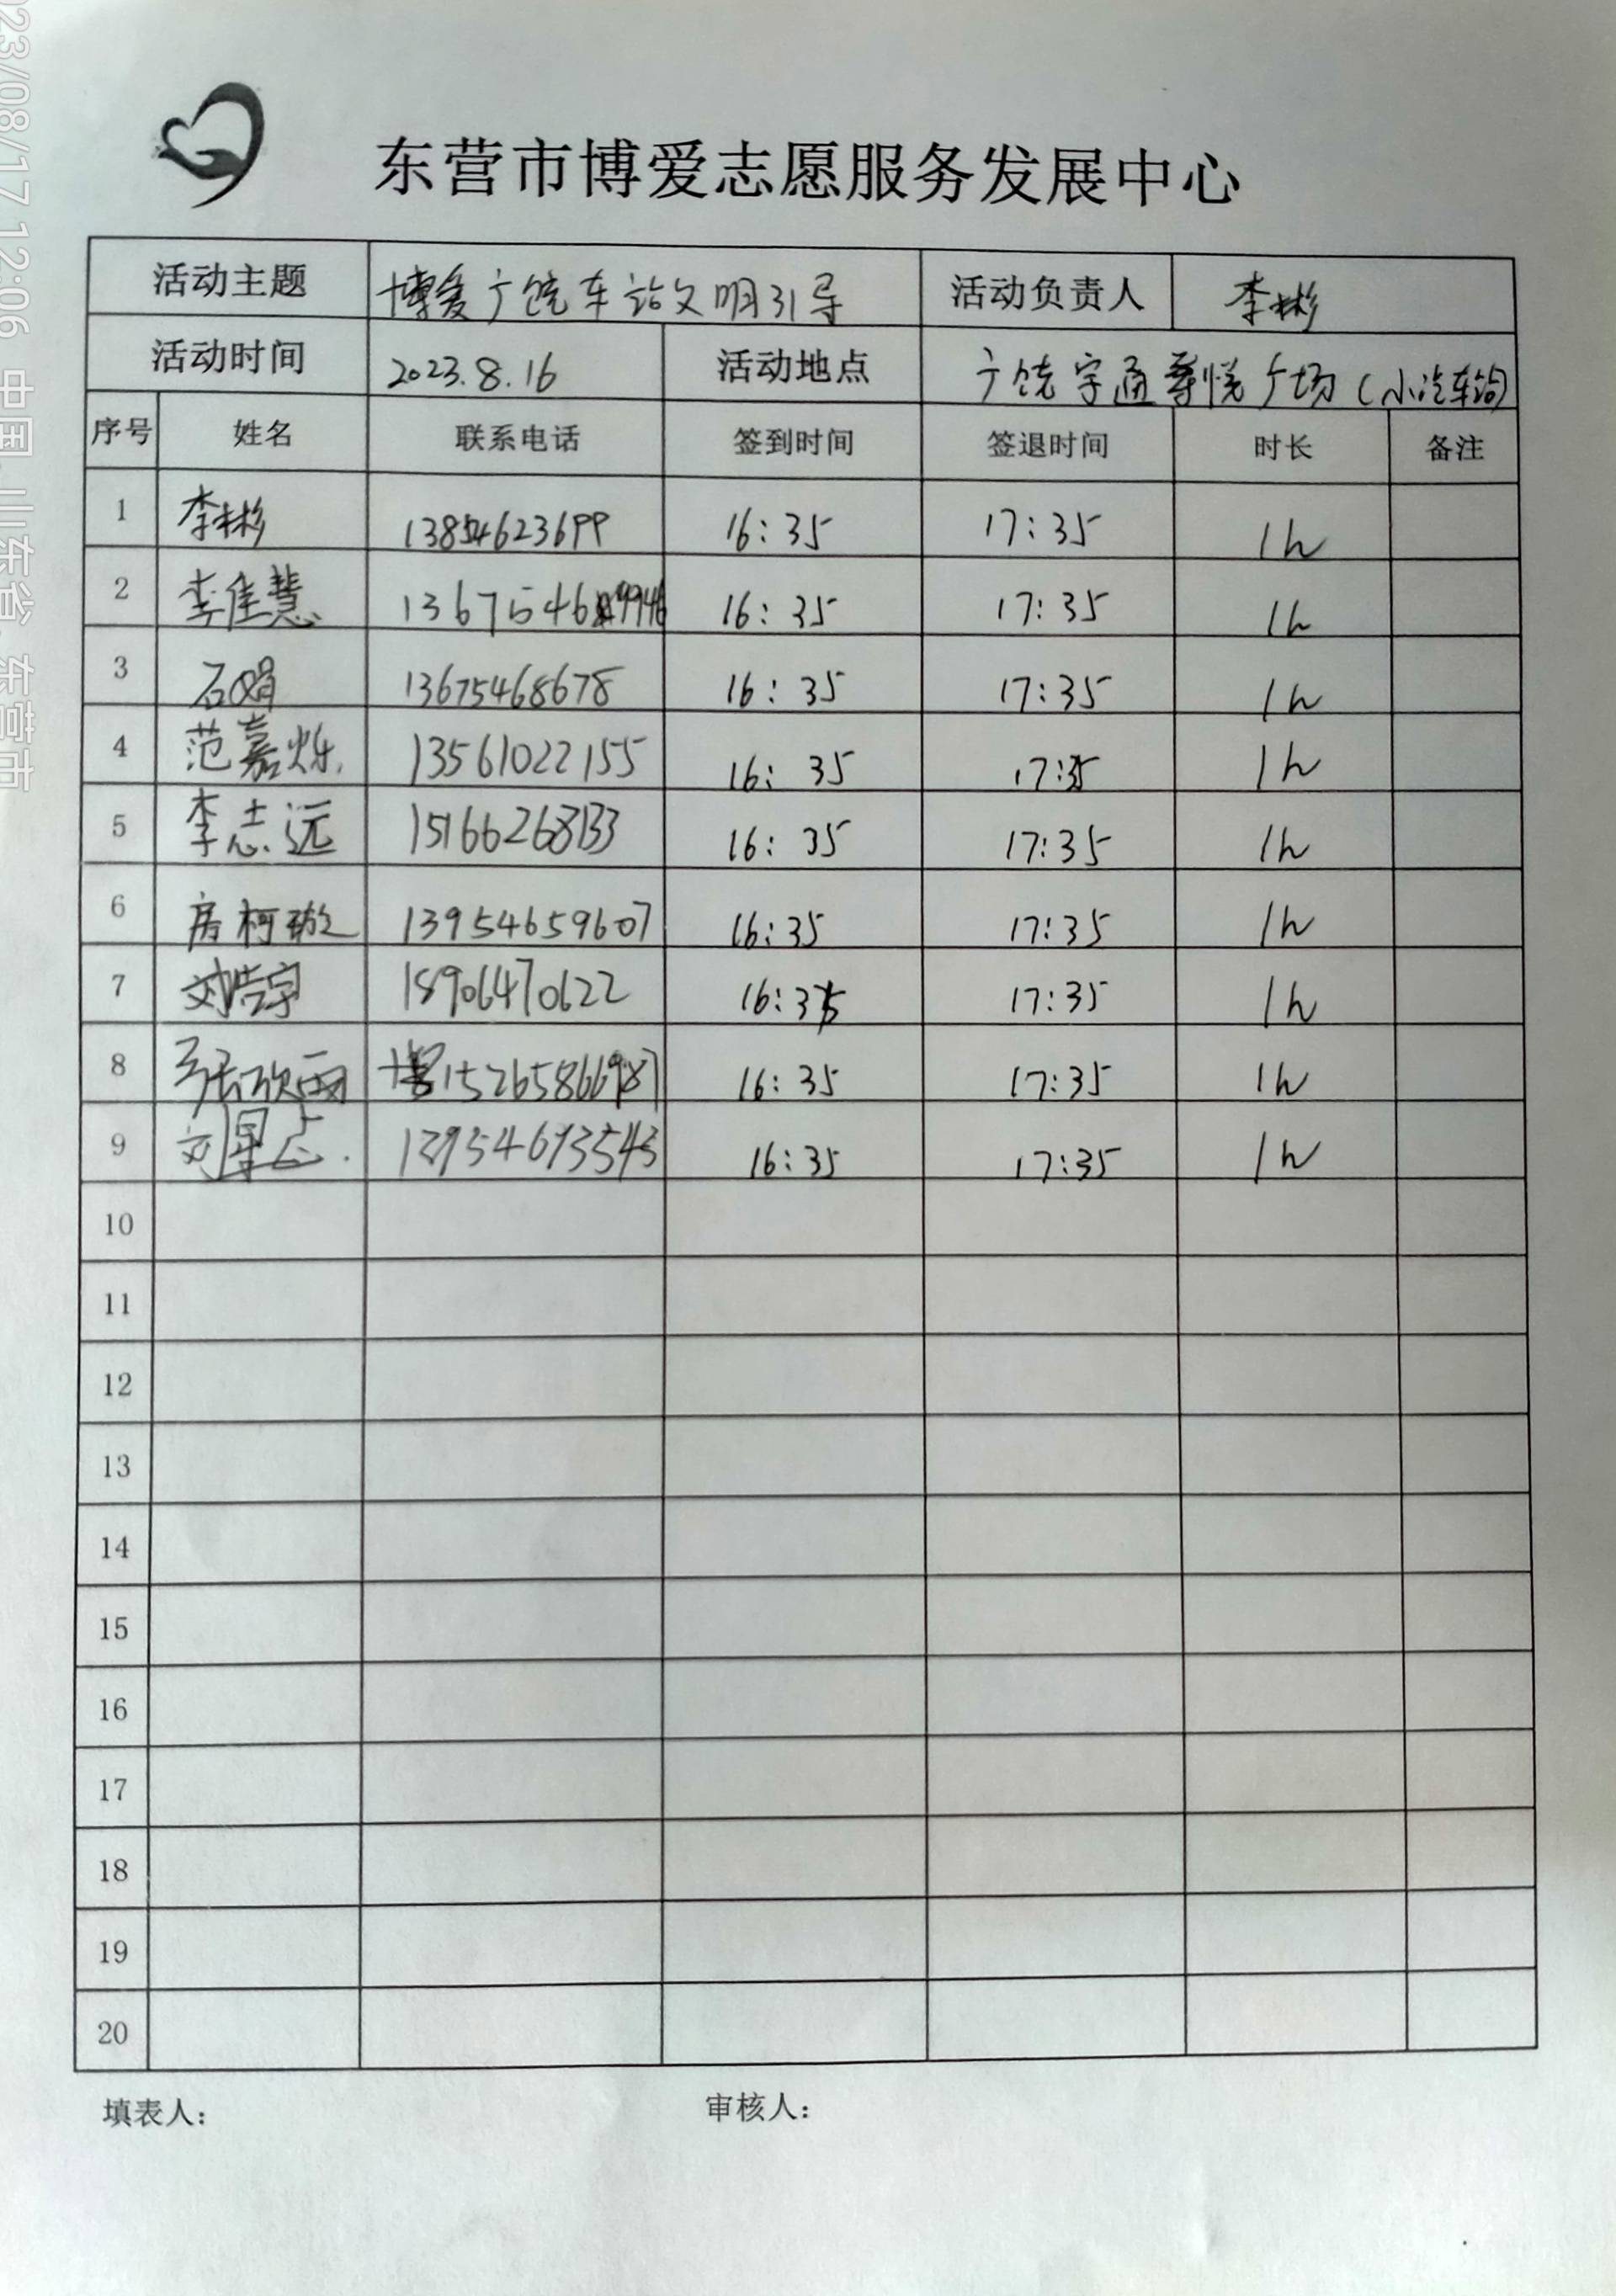 2023/08/17 12:06 中国 山东省 东营市
东营市博爱志愿服务发展中心
活动主题 博爱广饶车站文明引导 活动负责人 李彬
活动时间 2023.8.16 活动地点 广饶宇通尊悦广场(小汽车站)
序号 姓名 联系电话 签到时间 签退时间 时长 备注
1 李彬 13854623699 16:35 17:35 1h
2 李佳慧 1367546 9946 16:35 17:35 1h
3 石娟 13675468678 16:35 17:35 1h
4 范嘉烁 13561022155 16:35 17:35 1h
5 李志远 15166268133 16:35 17:35 1h
6 房柯璇 13954659607 16:35 17:35 1h
7 刘浩宇 18906470622 16:35 17:35 1h
8 张欣雨 15265866987 16:35 17:35 1h
9 13954693543 16:35 17:35 1h
10
11
12
13
14
15
16
17
18
19
20
填表人: 审核人: